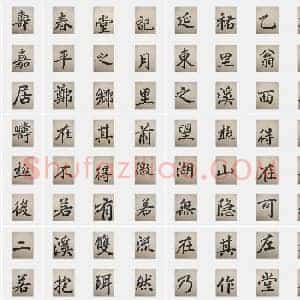 壽春堂記延祐己
嘉平之月東里翁
居鄭鄉里之溪西
疇在其前望得
不得湖山在
後若有若無隱可
二溪雙流在其左
若抱珥然乃作堂